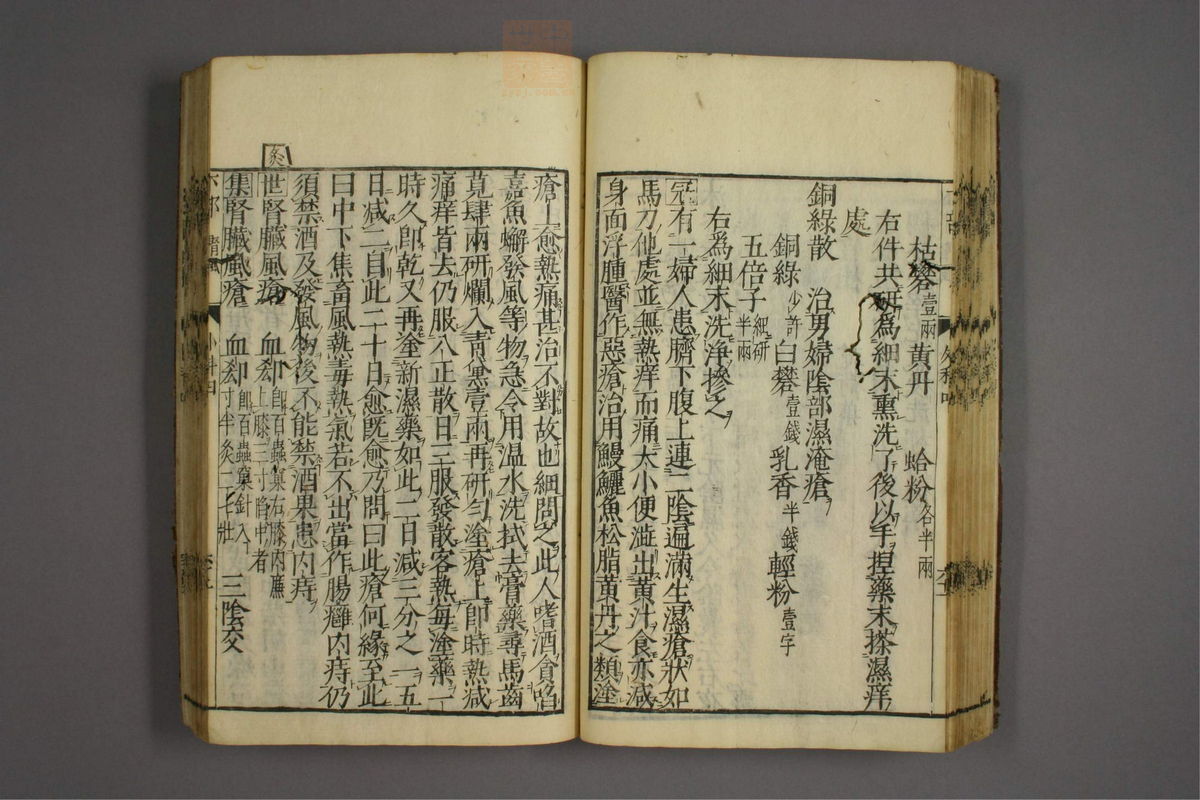 枯礬壹兩黃丹　蛤粉各半兩
右件共研爲細末熏洗了後以手捏藥末搽濕痒
處
銅綠散　治男婦陰部濕淹瘡
銅綠少許白礬壹錢乳香半錢輕粉壹字
五倍子細研半兩
右爲細末洗淨摻之
有一婦人患臍下腹上連二陰遍滿生濕瘡狀如
馬刀他處並無熱痒而痛大小便澁出黃汁食亦減
身面浮腫醫作惡瘡治用鰻鱺魚松脂黃丹之類塗
瘡上愈熱痛甚治不對故也細問之此人嗜酒貪啗
嘉魚蠏發風等物急令用溫水洗拭去膏藥尋馬齒
莧肆兩研爛入靑黛壹兩再研勻塗瘡上即時熱減
痛痒皆去仍服八正散日三服發散客熱每塗藥一
時久即乾又再塗新濕藥如此二日減三分之一五
日減二自此二十日愈旣愈乃問曰此瘡何緣至此
曰中下焦畜風熱毒熱氣若不出當作腸癰內痔仍
須禁酒及發風物後不能禁酒果患內痔
灸
世腎臟風瘡　血郄即百蟲窠右膝內廉上膝三寸陷中者
集腎臟風瘡　血郄即百蟲窠針入寸半灸二七壯　三陰交